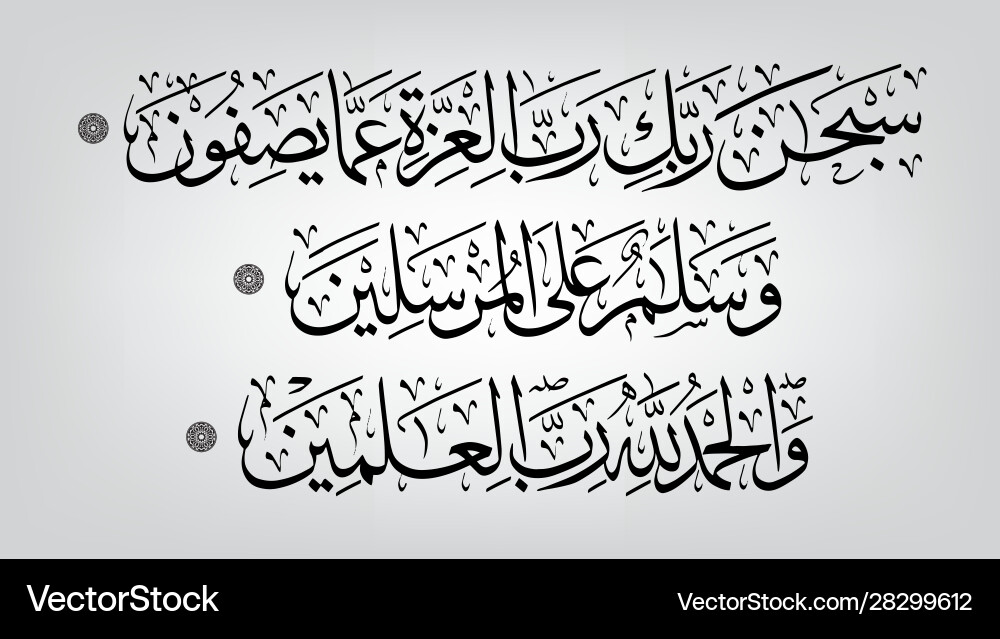 سُبْحَٰنَ رَبِّكَ رَبِّ الْعِزَّةِ عَمَّا يَصِفُونَ
وَسَلَٰمٌ عَلَى الْمُرْسَلِينَ
وَالْحَمْدُ لِلَّهِ رَبِّ الْعَٰلَمِينَ
VectorStock
VectorStock.com/28299612